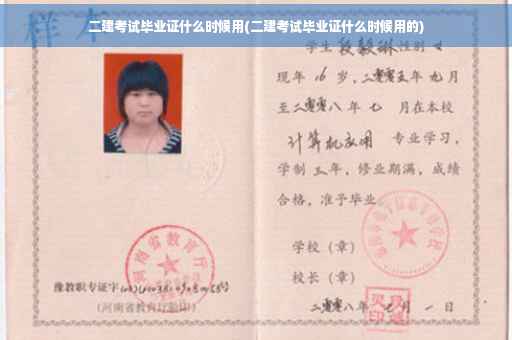 二建考试毕业证什么时候用(二建考试毕业证什么时候用的)
样本
学生段毅琳性别女
现年16岁，二零零五年九月
至二零零八年七月在本校
计算机应用 专业学习，
学制三年，修业期满，成绩
合格，准予毕业
学校（章）
校长（章）
二零零八年七月一日
河南省教育厅
豫教职专证字
（河南省教育厅验印）